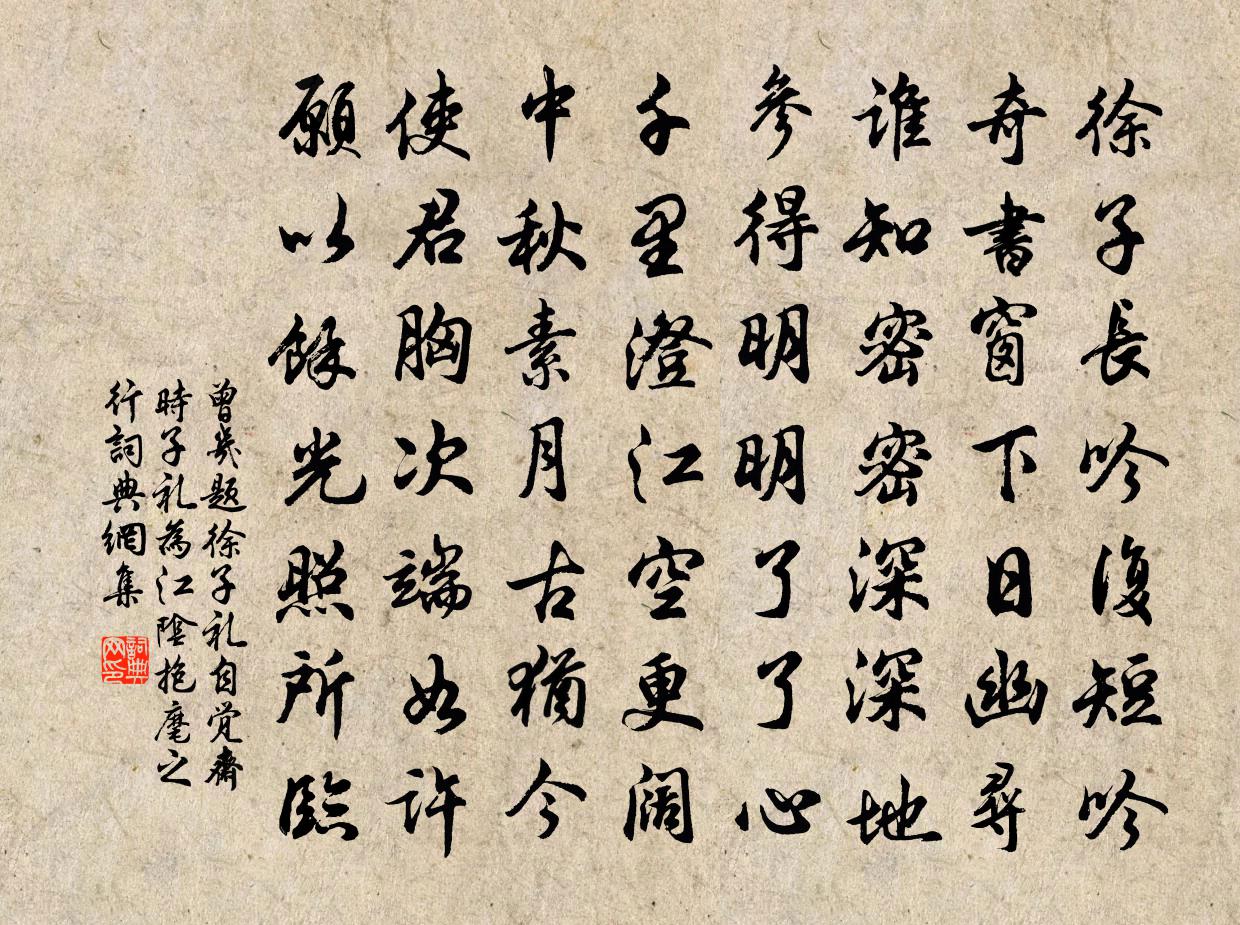 徐子長吟復短吟
奇書窗下日幽尋
誰知密密深深地
參得明明了了心
千里澄江空更闊
中秋素月古猶今
使君胸次端如許
願以餘光照所臨
曾幾題徐子礼自覚齋
時子礼為江陰抱麾之
行詞典網集
詞典網印